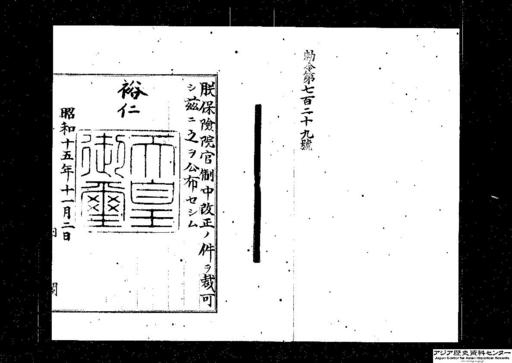 勅令第七百二十九號
朕保險院官制中改正ノ件ヲ裁可
シ茲ニ之ヲ公布セシム
裕仁
天皇
御璽
昭和十五年十一月二日
内閣
アジア歴史資料センター
Japan Center for Asian Historical Records